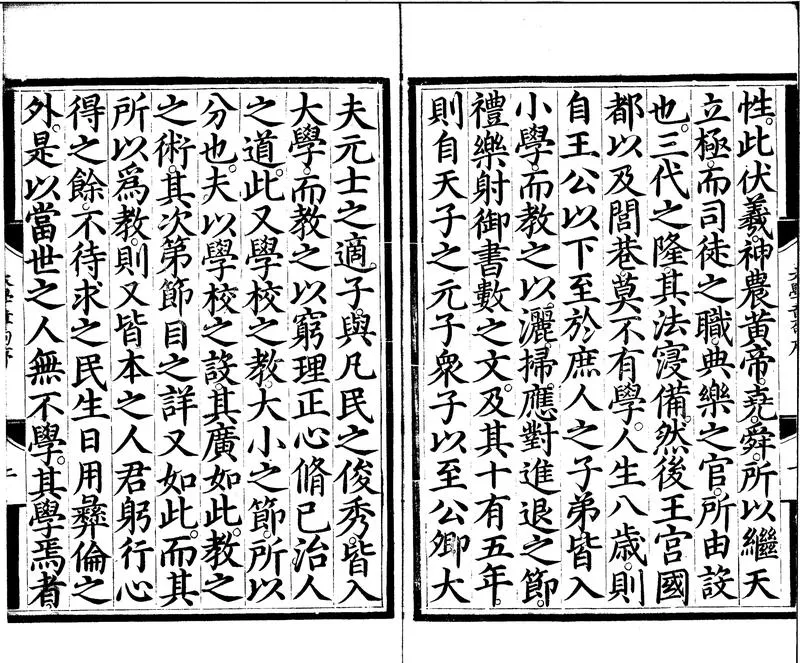 性。此伏羲。神農。黃帝。堯。舜。所以繼天
立極。而司徒之職。典樂之官。所由設
也。三代之隆。其法寖備。然後王宮國
都以及閭巷。莫不有學。人生八歲。則
自王公以下至於庶人之子弟皆入
小學。而教之以灑掃。應對進退之節。
禮樂射御書數之文。及其十有五年。
則自天子之元子衆子以至公卿大
夫元士之適子。與凡民之俊秀。皆入
大學。而教之以窮理正心脩己治人
之道。此又學校之教。大小之節。所以
分也。夫以學校之設。其廣如此。教之
之術。其次第節目之詳又如此。而其
所以爲教。則又皆本之人君躬行心
得之餘。不待求之民生日用彝倫之
外。是以當世之人無不學。其學焉者。